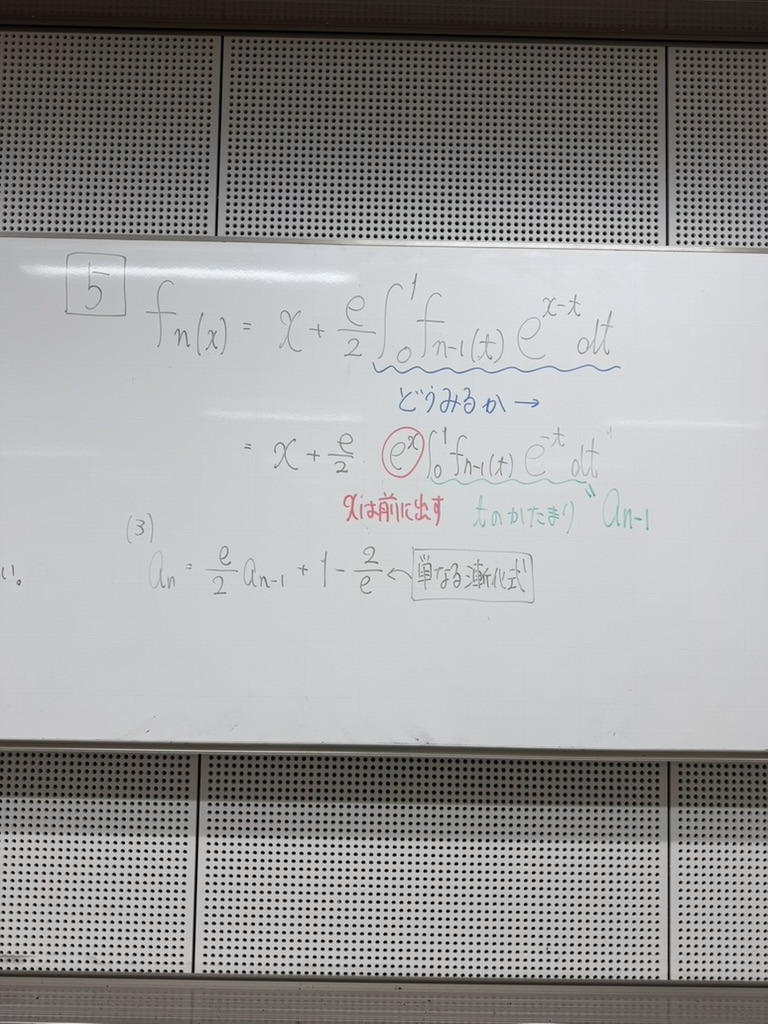 5 fn(x) = x + e/2 ∫₀¹ fn-1(t) e^(x-t) dt
どうみるか →
= x + e/2 e^x ∫₀¹ fn-1(t) e^(-t) dt
xは前に出す tのかたまり " an-1
(3)
an = e/2 an-1 + 1 - 2/e ← 単なる漸化式
い。